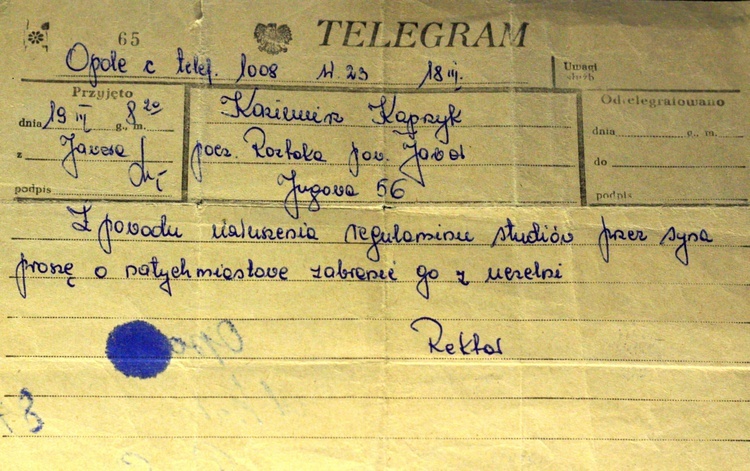 65 TELEGRAM
Opole c telef. 1008 N 23 18 III.
Uwagi
służb
Przyjęto
dnia 19 III g., m. 8 20
z Jawora
podpis
Kazimierz Kaprzyk
pocz. Roztoka pow. Jawor
Jugowa 56
Odtelegrafowano
dnia g., m.
do
podpis
Z powodu naruszenia regulaminu studiów przez syna
proszę o natychmiastowe zabranie go z uczelni
Rektor